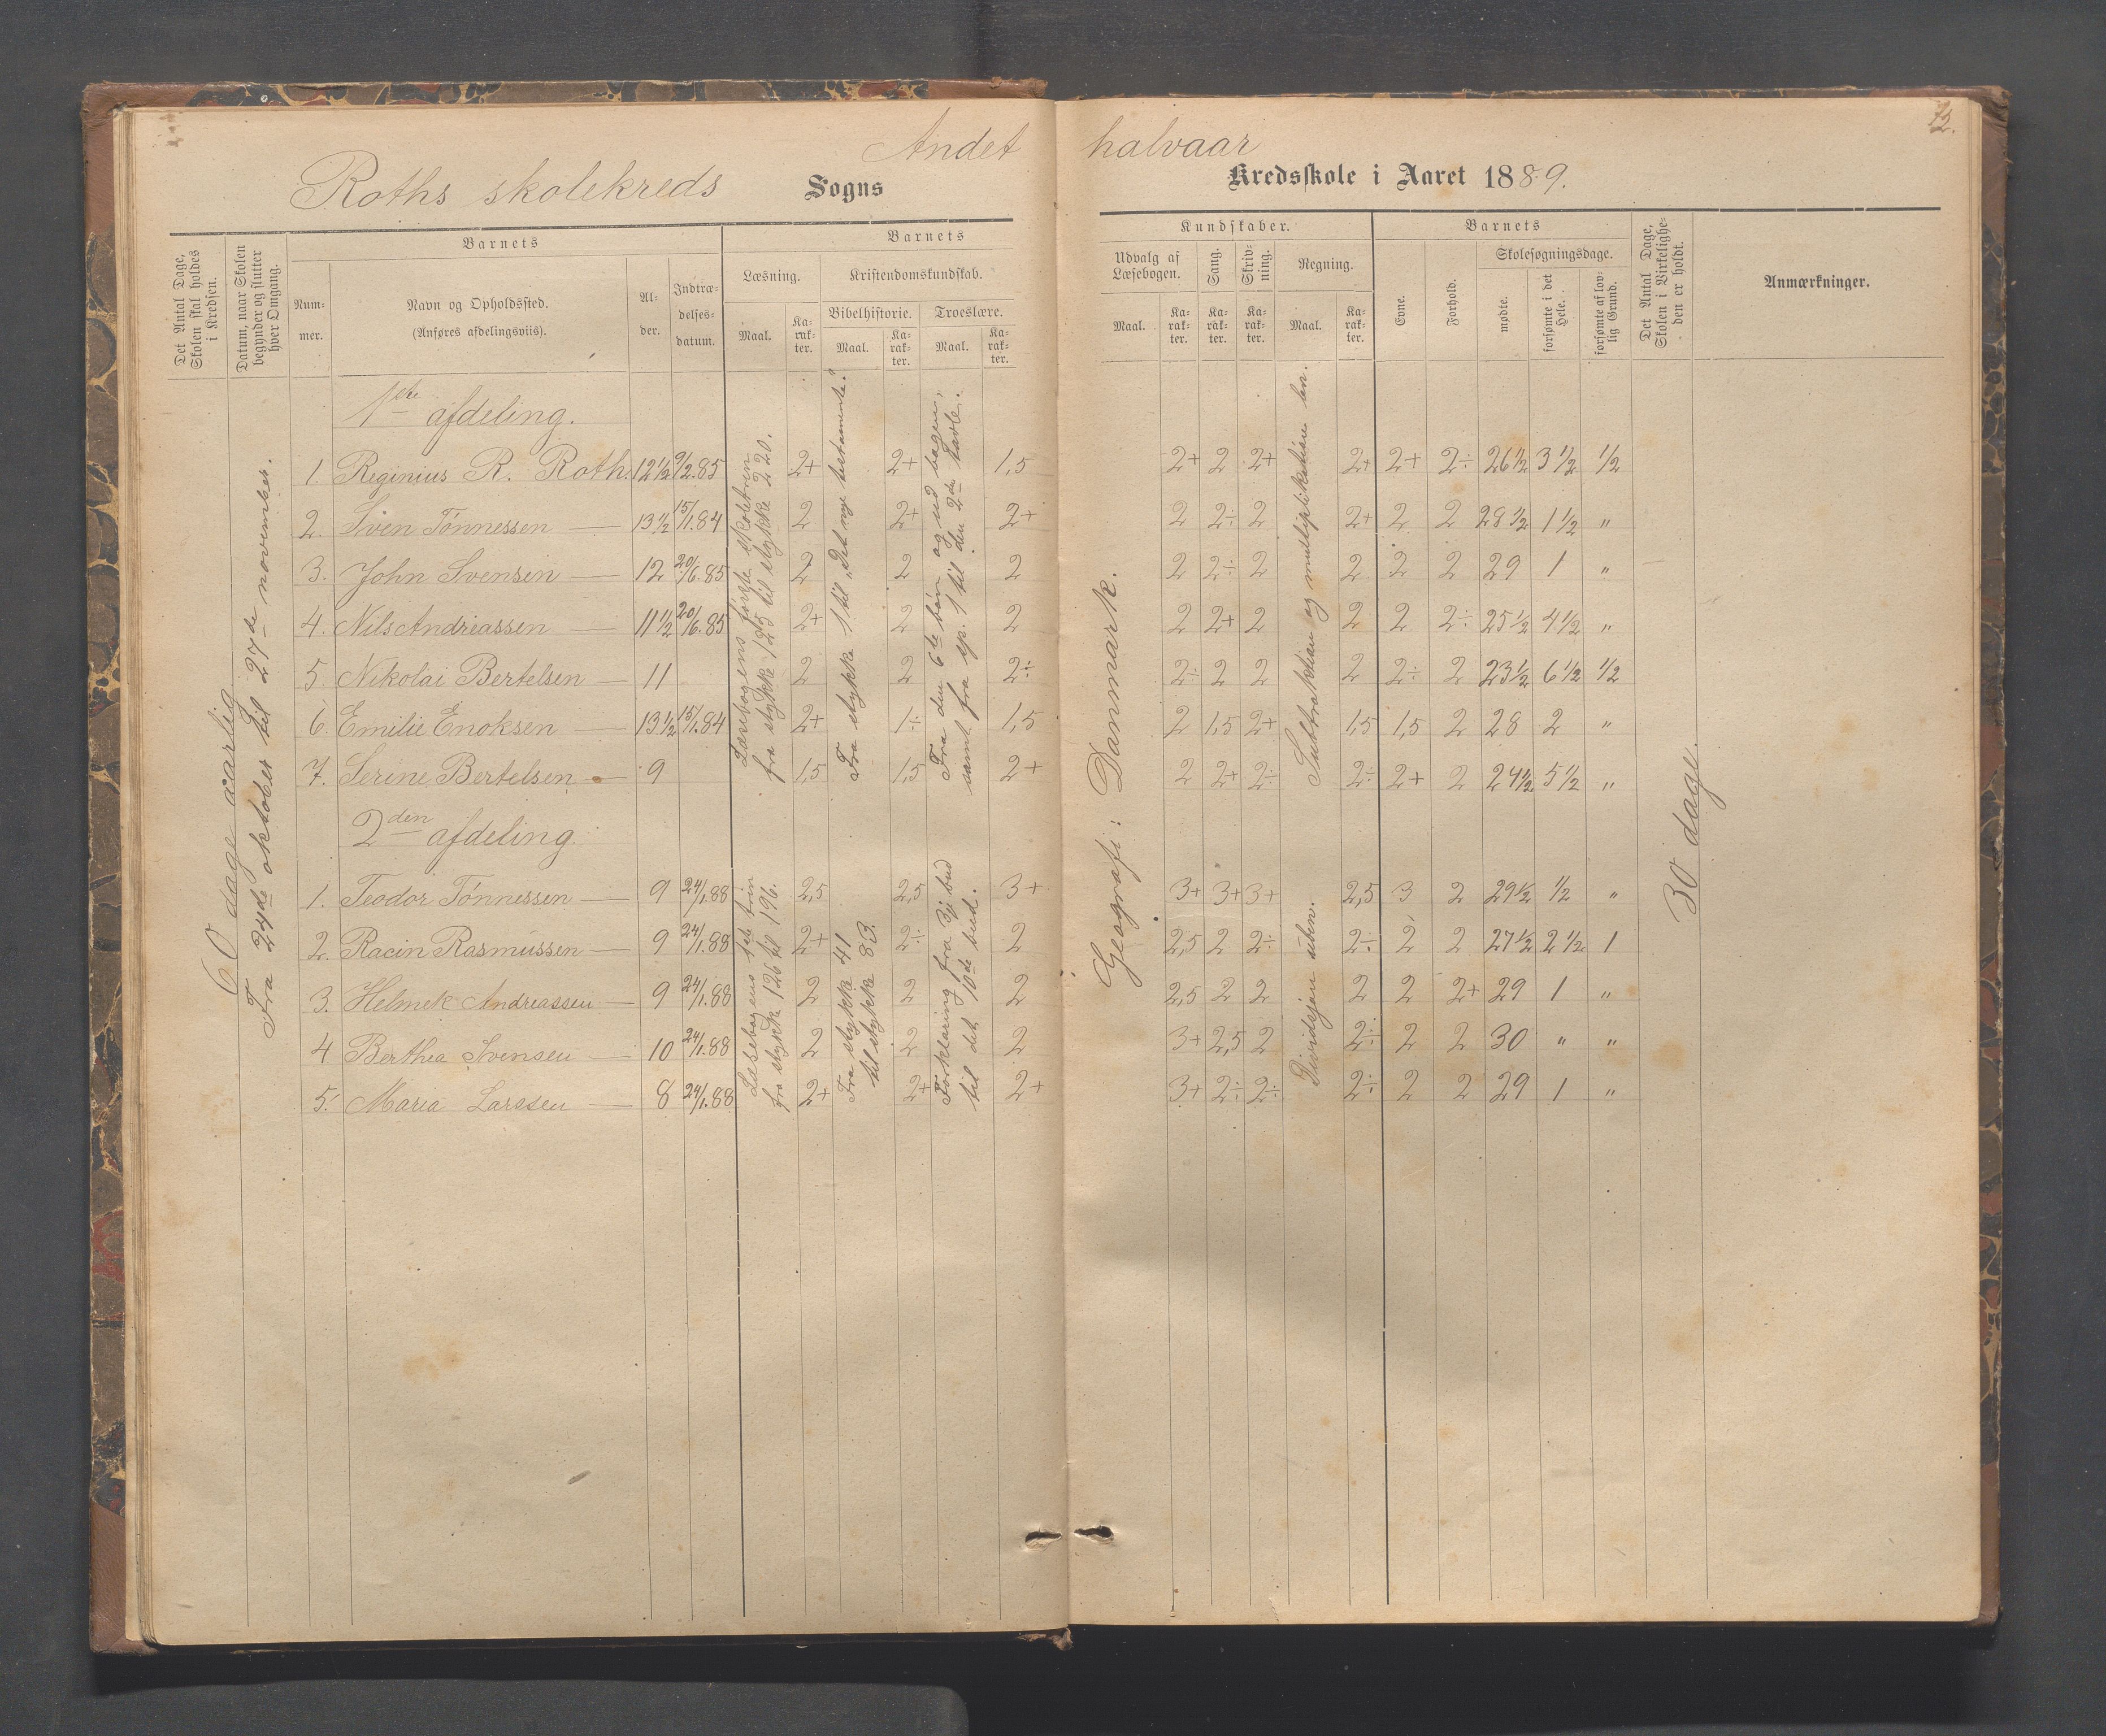 Andet halvaar
12.
Roths skolekreds Sogns Kredsskole i Aaret 1889.
Det Antal Dage, Skolen skal holdes i Kredsen.
Datum, naar Skolen begynder og slutter hver Omgang.
Barnets
Nummer.
Navn og Opholdssted.
(Anføres afdelingsviis).
Alder.
Indtrædelsesdatum.
Barnets
Læsning.
Maal.
Karakter.
Kristendomskundskab.
Bibelhistorie.
Maal.
Karakter.
Troeslære.
Maal.
Karakter.
Kundskaber.
Udvalg af Læsebogen.
Maal.
Karakter.
Sang.
Karakter.
Skrivning.
Karakter.
Regning.
Maal.
Karakter.
Barnets
Evne.
Forhold.
Skolesøgningsdage.
mødte.
forsømte i det Hele.
forsømte af lovlig Grund.
Det Antal Dage, Skolen i Virkeligheden er holdt.
Anmærkninger.
60 dage aarlig
Fra 24de oktober til 27de november.
1ste afdeling.
1. Reginius R. Roth. 12 1/2 9/2.85 2+ 2+ 1,5 2+ 2 2+ 2+ 2+ 2÷ 26 1/2 3 1/2 1/2
2. Sven Tønnessen — 13 1/2 15/1.84 2 2+ 2+ 2 2÷ 2 2+ 2 2 28 1/2 1 1/2 "
3. John Svensen — 12 20/6.85 2 2 2 2 2÷ 2 2 2 2 29 1 "
4. Nils Andreassen — 11 1/2 20/6.85 2+ 2 2 2 2+ 2 2 2 2÷ 25 1/2 4 1/2 "
5. Nikolai Bertelsen — 11 2 2 2÷ 2÷ 2 2 2 2÷ 2 23 1/2 6 1/2 1/2
6. Emilie Enoksen — 13 1/2 15/1.84 2+ 1÷ 1,5 2 1,5 2+ 1,5 1,5 2 28 2 "
7. Serine Bertelsen — 9 1,5 1,5 2+ 2 2+ 2÷ 2÷ 2+ 2 24 1/2 5 1/2 "
Læsebogens første skoletrin
fra stykke 125 til stykke 220.
Fra stykke 1 til „Det nye testamente."
Fra den 6te bøn og ud bogen,
samt fra sp. 1 til den 2den tavle.
Geografi: Danmark.
Suttraktion og multiplikation ben.
30 dage.
2den afdeling.
1. Teodor Tønnessen — 9 24/1.88 2,5 2,5 3+ 3+ 3+ 3+ 2,5 3 2 29 1/2 1/2 "
2. Racin Rasmussen — 9 24/1.88 2+ 2÷ 2 2,5 2 2÷ 2÷ 2 2 27 1/2 2 1/2 1
3. Helmek Andreassen — 9 24/1.88 2 2 2 2,5 2 2 2 2 2+ 29 1 "
4 Berthea Svensen — 10 24/1.88 2 2 2 3+ 2,5 2 2÷ 2 2 30 " "
5. Maria Larssen — 8 24/1.88 2+ 2+ 2+ 3+ 2÷ 2÷ 2÷ 2 2 29 1 "
Læsebogens 1ste trin
fra stykke 126 til 196.
Fra stykke 41
til stykke 83.
Forklaring fra 3je bud
til det 10de bud.
Dividsjon uben.